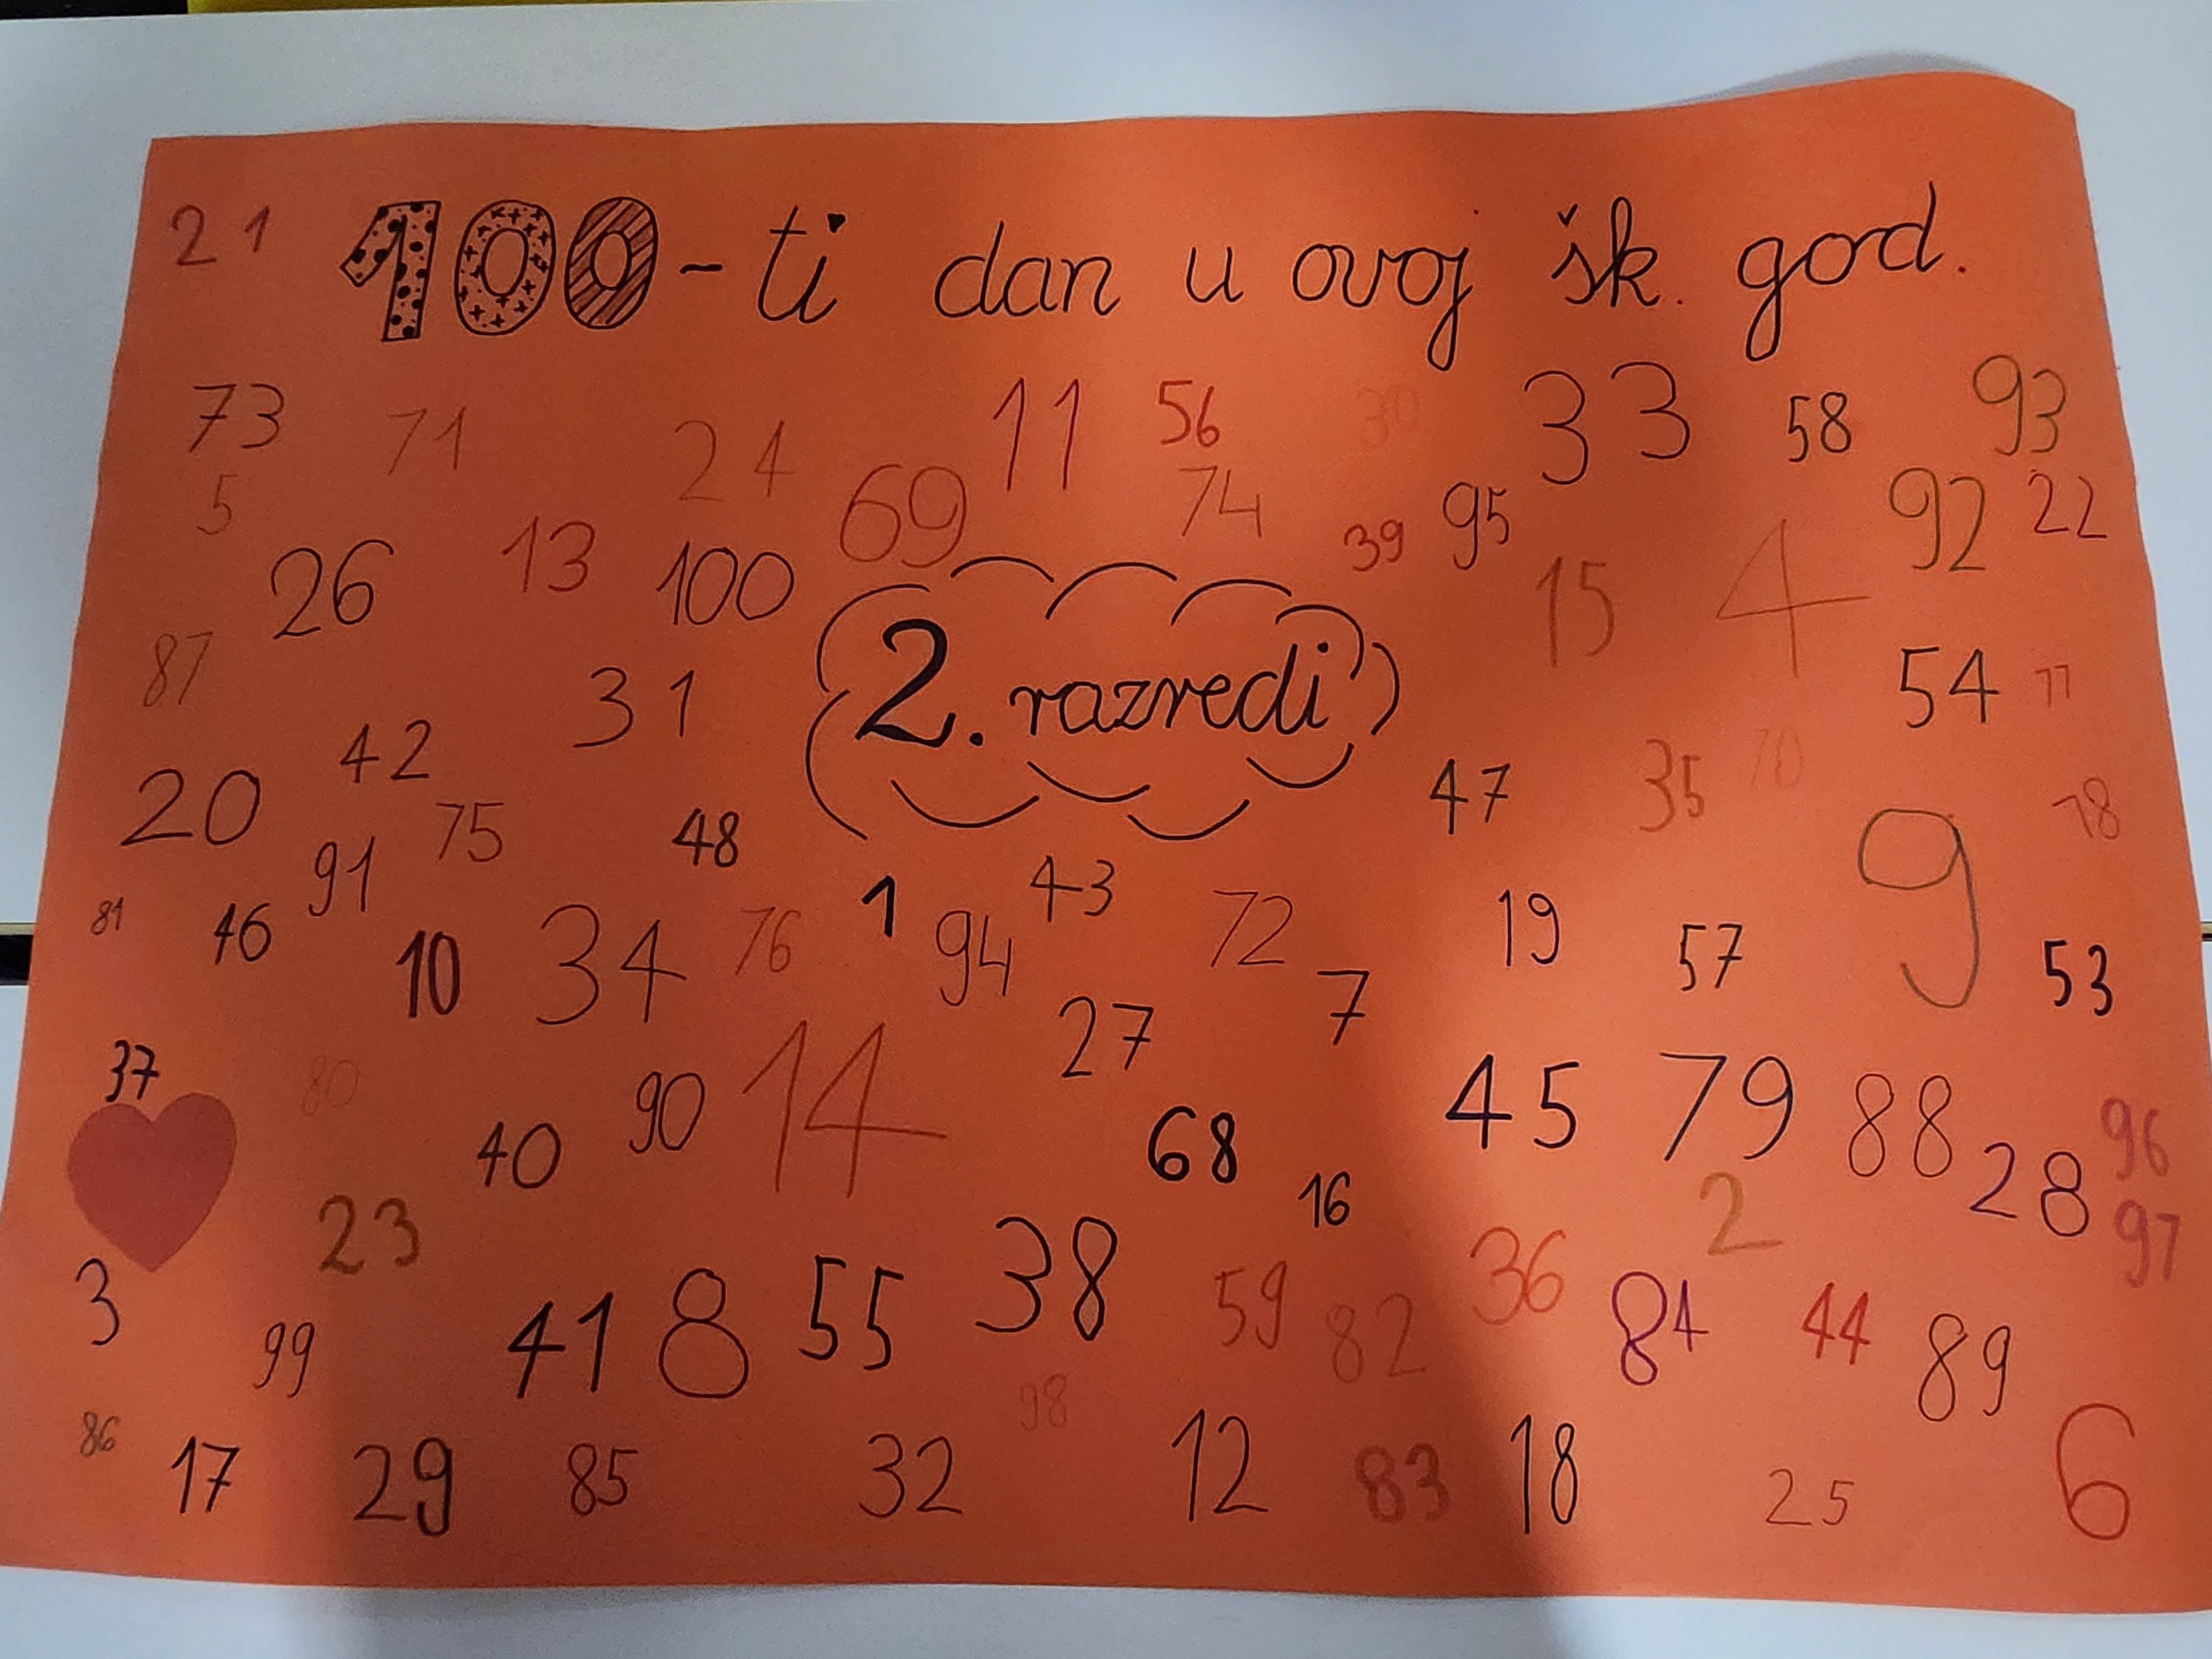 21 100-ti dan u ovoj šk. god.
73 71 24 11 56 30 33 58 93
5 69 74 39 95 92 22
26 13 100 15 4
87 31 2. razredi 54 77
42 47 35 70
20 75 48 9 78
91 1 43 72 19 57
81 46 10 34 76 94 27 7 53
37 80 90 14 45 79 88 96
40 68 16 28
23 38 2 97
3 99 41 8 55 59 82 36 84 44 89
98
86 17 29 85 32 12 83 18 25 6